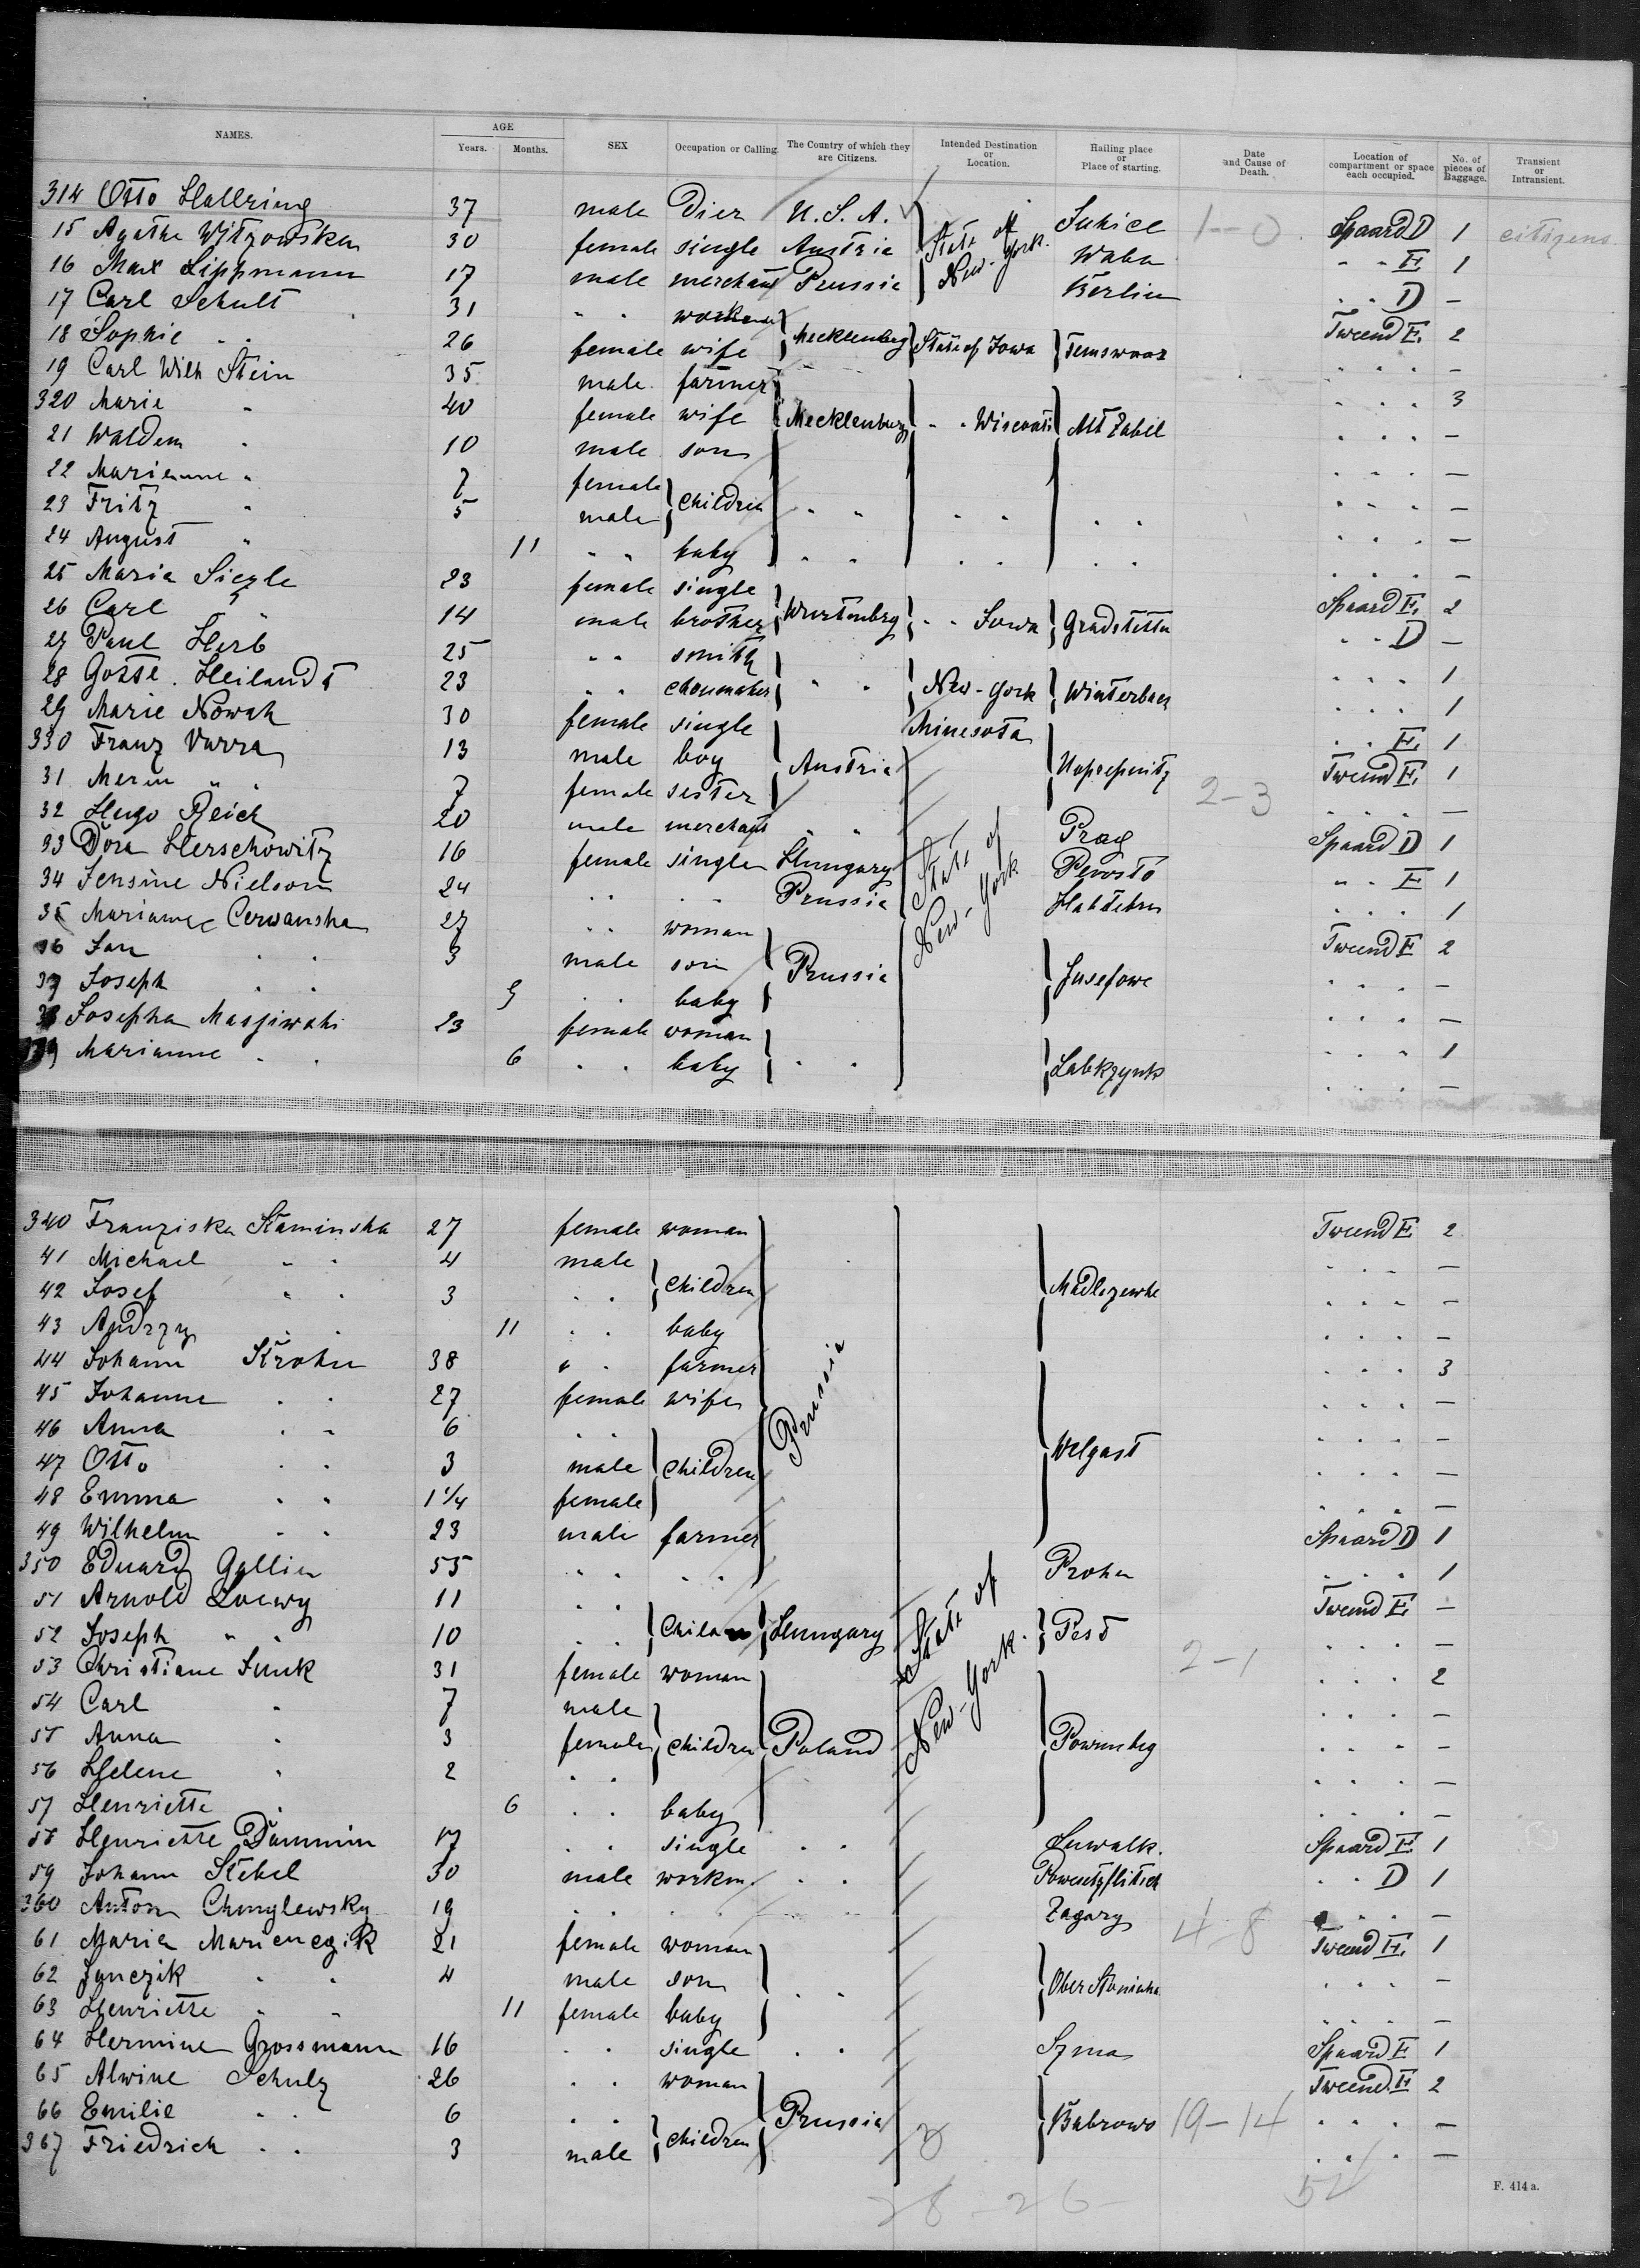 NAMES. AGE Years. Months. SEX Occupation or Calling. The Country of which they are Citizens. Intended Destination or Location. Hailing place or Place of starting. Date and Cause of Death. Location of compartment or space each occupied. No. of pieces of Baggage. Transient or Intransient.
314 Otto Hallring 37 male Dier U.S.A. State of New-York. 1-0 Spaard D 1 citizens
15 Agathe Witzowska 30 female single Austria Waba " " E 1
16 Max Lippmann 17 male merchant Prussia Berlin " " D —
17 Carl Schult 31 " " Tweend E. 2
18 Sophie " " 26 female wife Mecklenburg State of Iowa " " " —
19 Carl Wilh Stein 35 male farmer " " " 3
320 Marie " 40 female wife Mecklenburg " " Alt Zabel " " " —
21 Waldem " 10 male son " " " —
22 Marianne " 7 female " " " —
23 Fritz " 5 male children " " " " " " " " " —
24 August " 11 " " baby " " " " " " " " " —
25 Maria Siegle 23 female single Spaard E. 2
26 Carl " 14 male brother " " Iowa " " D —
27 Paul Herb 25 " " smith " " " 1
28 Gotte. Heilandt 23 " " " " New-York Winterbach " " " 1
29 Marie Nowak 30 female single Minesota " " E. 1
330 Franz Varra 13 male boy Austria Tweend E. 1
31 " " 7 female sister 2-3 " " " —
32 Hugo Reich 20 male merchant " " Prag Spaard D 1
33 Dora Herschowitz 16 female single Hungary State of New-York " " E 1
34 Jensine Nielson 24 " " " " Prussia " " " 1
35 Marianne Cerwanska 27 " " woman Tweend E 2
36 Jan " " 3 male son Prussia Jusefowe " " " —
37 Joseph " " 9 " " baby " " " —
38 Josepha 23 female woman " " " 1
339 Marianne " " 6 " " baby " " " " " —
340 Franziska Kaminska 27 female woman Tweend E. 2
41 Michael " " 4 male " " " —
42 Josef " " 3 " " children " " " —
43 Andrzy " " 11 " " baby " " " —
44 Johann Krohn 38 " " farmer Prussia " " " 3
45 Johanne " " 27 female wife " " " —
46 Anna " " 6 " " " " " —
47 Otto " " 3 male children Wolgast " " " —
48 Emma " " 1 1/4 female " " " —
49 Wilhelm " " 23 male farmer Spaard D 1
350 Eduard Gallin 55 " " " " Prohn " " " 1
51 Arnold Loewy 11 " " Tweend E. —
52 Joseph " " 10 " " Hungary State of New-York. Pest 2-1 " " " —
53 Christiane Funk 31 female woman " " " 2
54 Carl " 7 male " " " —
55 Anna " 3 female children Poland " " " —
56 Helene " 2 " " " " " —
57 Henriette " 6 " " baby " " " —
58 Henriette Dammin 17 " " single " " Suwalk. Spaard E. 1
59 Johann Stebel 30 male workm. " " " " D 1
360 Anton Chmylewsky 19 " " " " " " Zagary 4-8 " " " —
61 Maria Marienczik 21 female woman Tweend E. 1
62 Janczik " " 4 male son " " " " " —
63 Henriette " " 11 female baby " " " —
64 Hermine Grossmann 16 " " single " " Szma Spaard E 1
65 Alwine Schulz 26 " " woman Tweend. E 2
66 Emilie " " 6 " " Prussia Babrowo 19-14 " " " —
367 Friedrich " " 3 male children " " " —
28-26 52
F. 414 a.